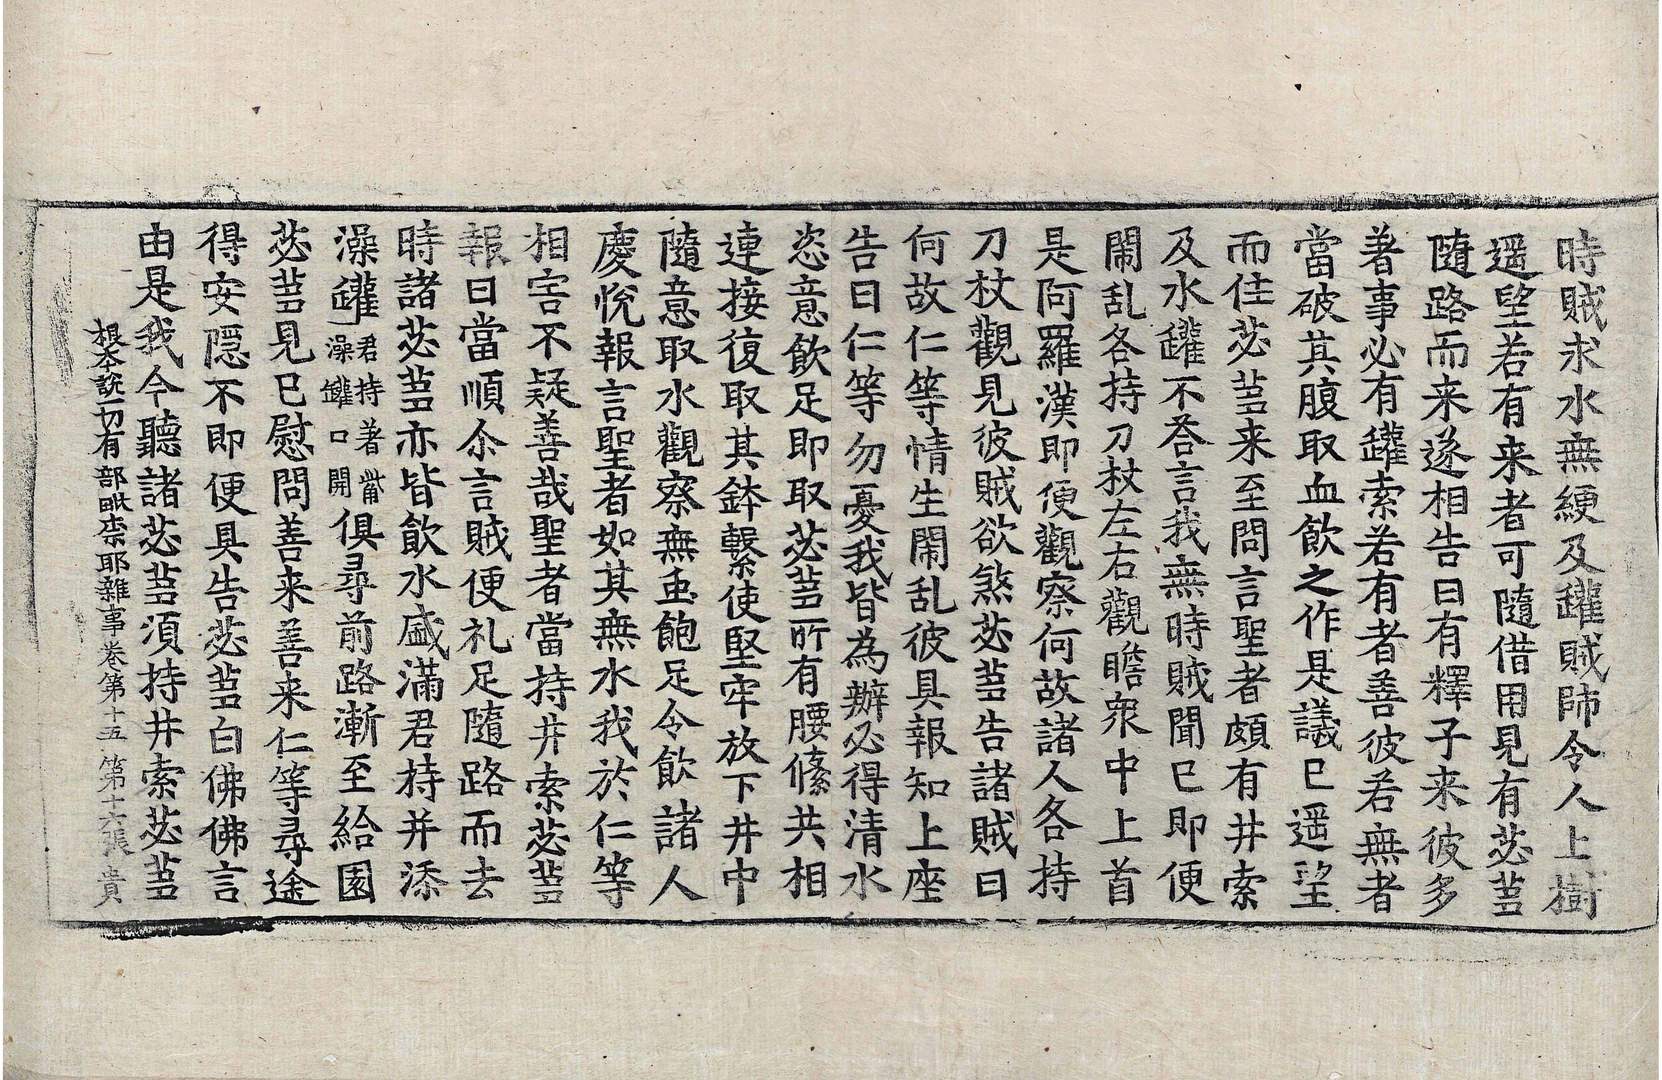 時賊求水無綆及罐賊師令人上樹
遥望若有来者可隨借用見有苾芻
隨路而来遂相告曰有釋子来彼多
著事必有罐索若有者善彼若無者
當破其腹取血飲之作是議已遥望
而住苾芻来至問言聖者頗有井索
及水罐不荅言我無時賊聞已即便
鬧乱各持刀杖左右觀瞻衆中上首
是阿羅漢即便觀察何故諸人各持
刀杖觀見彼賊欲煞苾芻告諸賊曰
何故仁等情生鬧乱彼具報知上座
告曰仁等勿憂我皆為辦必得清水
恣意飲足即取苾芻所有腰絛共相
連接復取其鉢繫使堅牢放下井中
隨意取水觀察無䖝飽足令飲諸人
慶悅報言聖者如其無水我於仁等
相害不疑善哉聖者當持井索苾芻
報曰當順尒言賊便礼足隨路而去
時諸苾芻亦皆飲水盛滿君持并添
澡罐君持著觜澡罐口開俱尋前路漸至給園
苾芻見已慰問善来善来仁等尋途
得安隠不即便具告苾芻白佛佛言
由是我今聽諸苾芻湏持井索苾芻
根本說一切有部毗柰耶雜事卷第十五 第十六張 貴